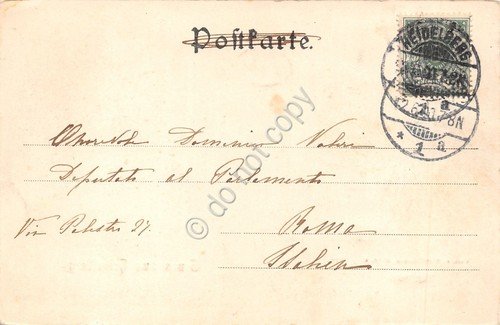 Postkarte.
HEIDELBERG
* 1 a
Onorevole Domenico Valeri
Deputato al Parlamento
Via Palestro 27
Roma
Italien
© do not copy